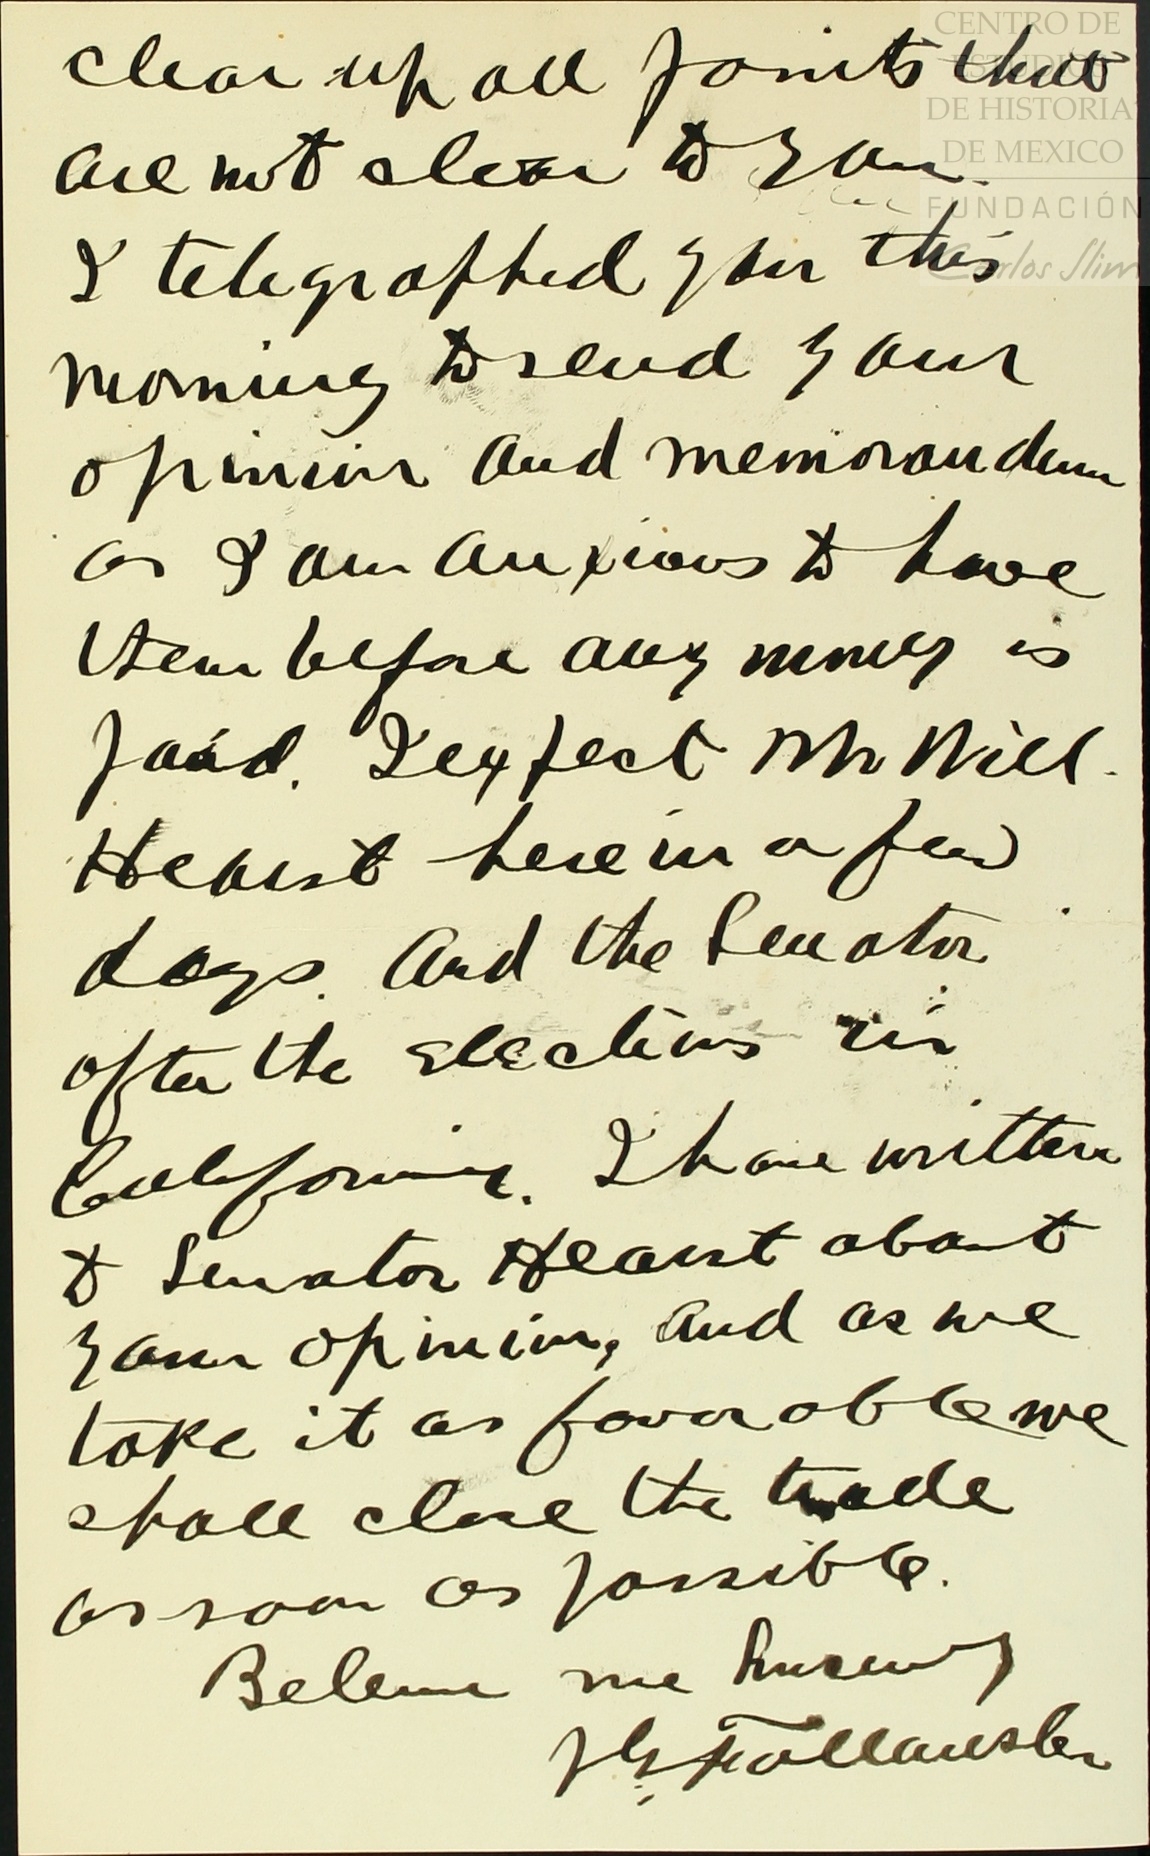 CENTRO DE
ESTUDIOS
DE HISTORIA
DE MEXICO
FUNDACIÓN
Carlos Slim
clear up all points that
are not clear to you.
I telegraphed you this
morning to send your
opinion and memorandum
as I am anxious to have
them before any money is
paid. I expect Mr Will.
Hearst here in a few
days. And the Senator
after the elections in
California. I have written
to Senator Hearst about
your opinion, and as we
take it as favorable we
shall close the trade
as soon as possible.
Believe me Sincerely
J G Follansbee